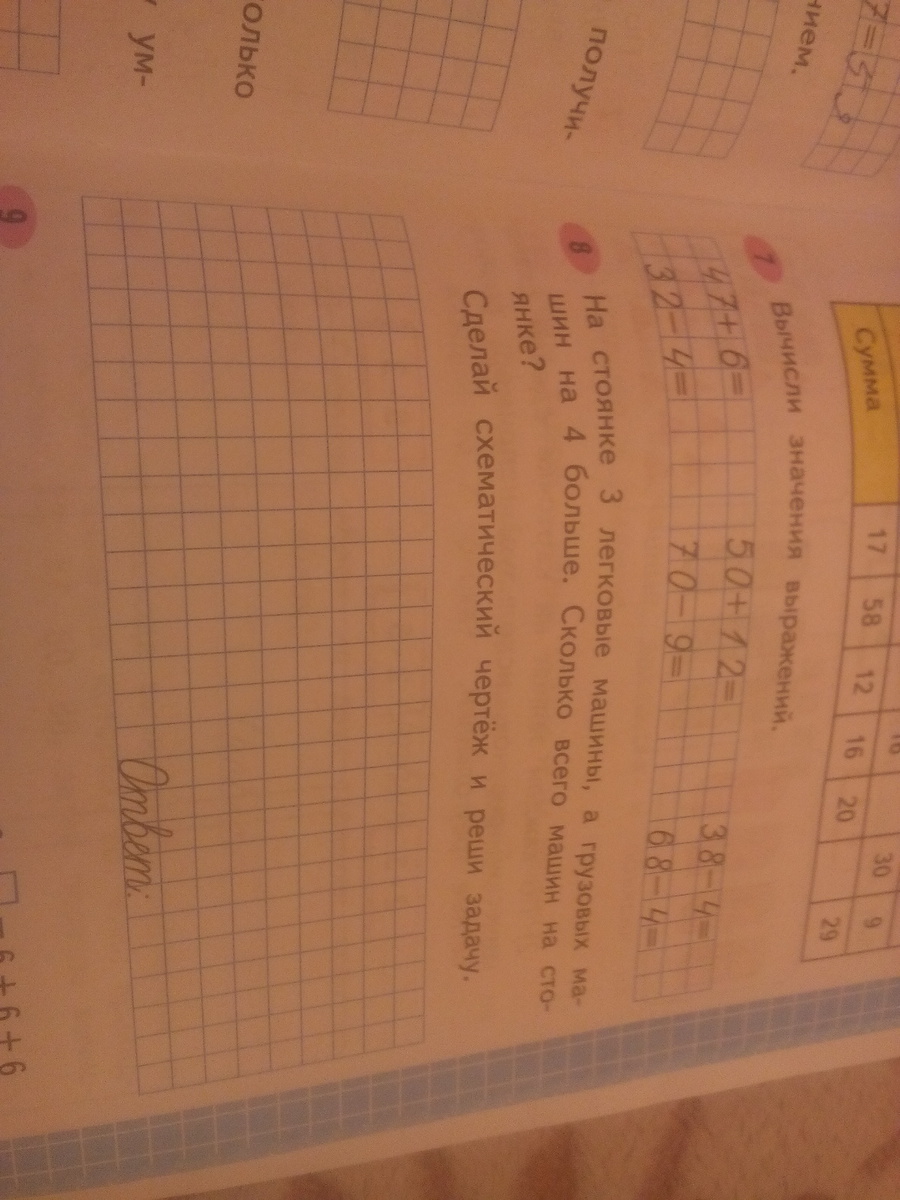 7=
нием.
получи-
олько
ум-
16
30
9
Сумма
17 58 12 16 20 29
7 Вычисли значения выражений.
47+6= 50+12= 38-4=
32-4= 70-9= 68-4=
8 На стоянке 3 легковые машины, а грузовых ма-
шин на 4 больше. Сколько всего машин на сто-
янке?
Сделай схематический чертёж и реши задачу.
Ответ:
9
= 6 + 6 + 6